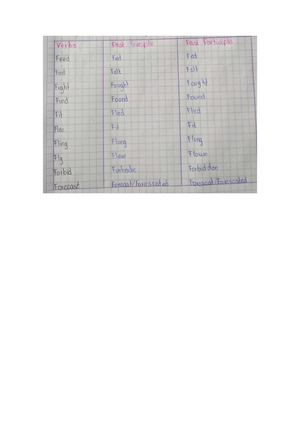 Verbs Past Simple Past Participle
Feed Fed Fed
Feel Felt Felt
Fight Fought Fought
Find Found Found
Fit Fled Fled
Flee Fit Fit
Fling Flung Flung
Fly Flew Flown
Forbid Forbade Forbidden
Forecast Forecast/Forecasted Forecast/Forecasted